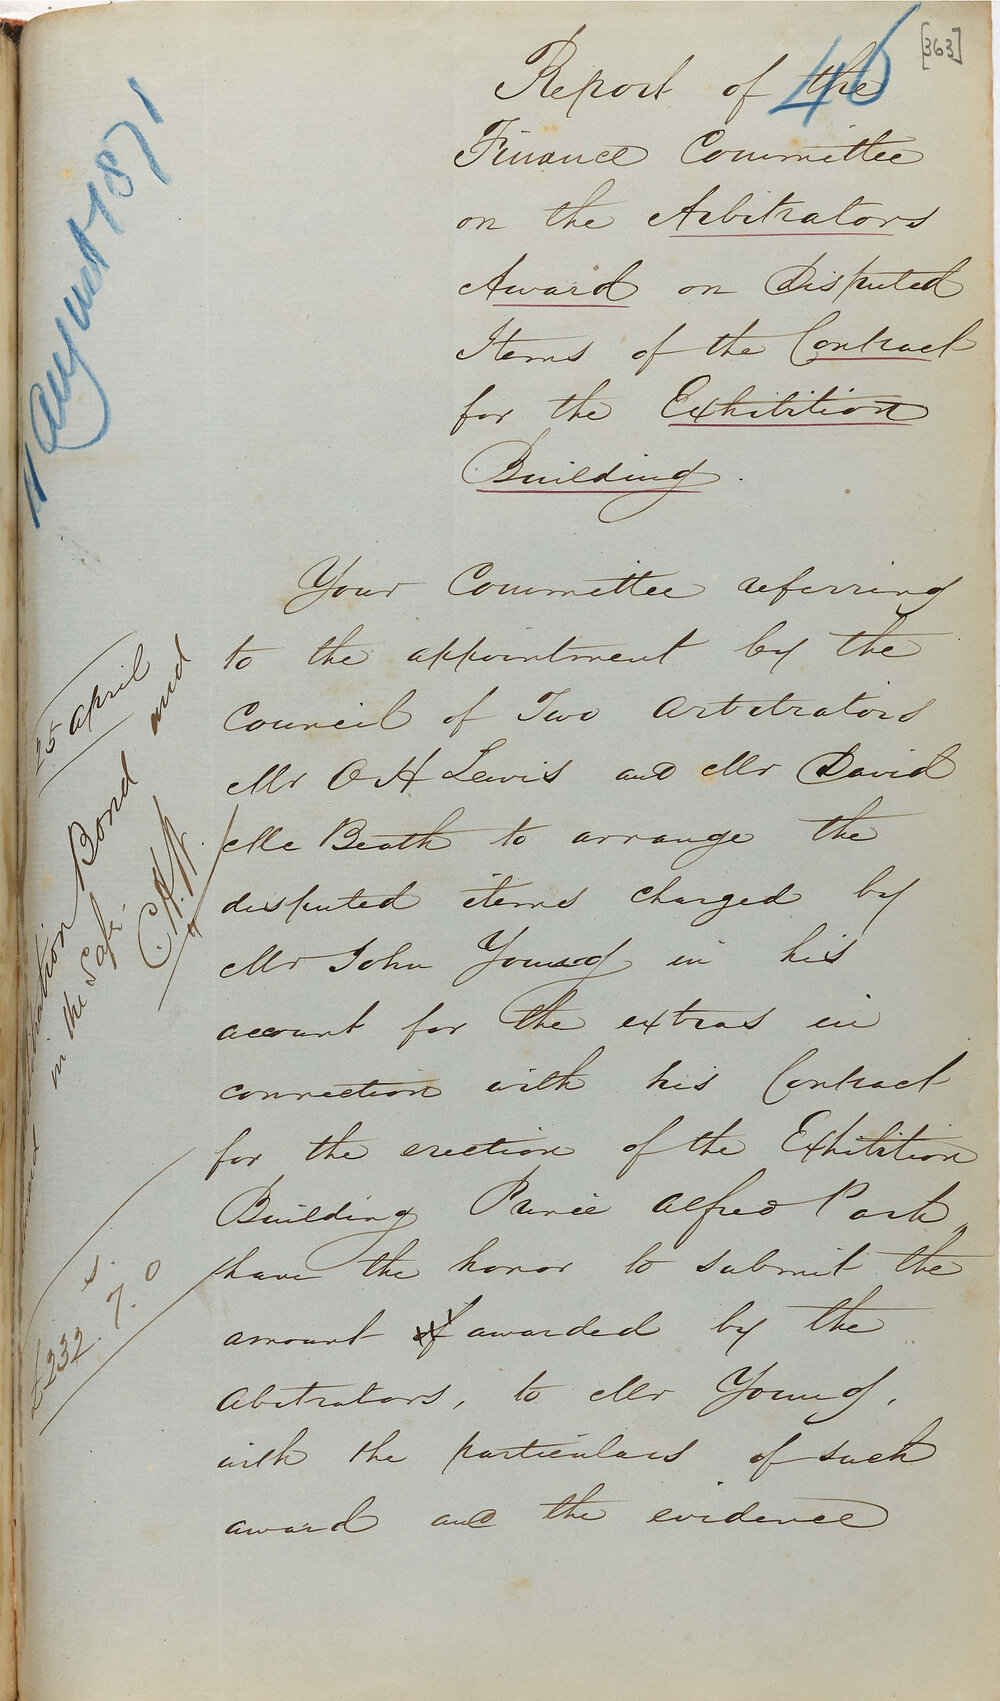 [363]
46
11 August 1871
Report of the
Finance Committee
on the Arbitrators
Award on Disputed
Items of the Contract
for the Exhibition
Building.
Your Committee referring
to the appointment by the
Council of Two Arbitrators
Mr O H Lewis and Mr David
Mc Beath to arrange the
disputed items charged by
Mr John Young in his
account for the extras in
connection with his Contract
for the erection of the Exhibition
Building Prince Alfred Park,
have the honor to submit the
amount of awarded by the
Abitrators, to Mr Young,
with the particulars of such
award and the evidence
25 April
Bond and
in the Safe.
C.H.W.
£232. 7. 0
s.